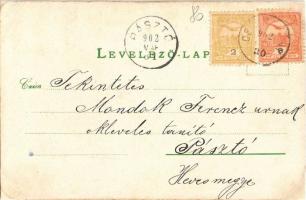 80
PÁSZTÓ
902
LEVELEZŐ-LAP
2
902
20
Czim Tekintetes
Mandak Ferencz urnak
okleveles tanitó
Pásztó
Hevesmegye